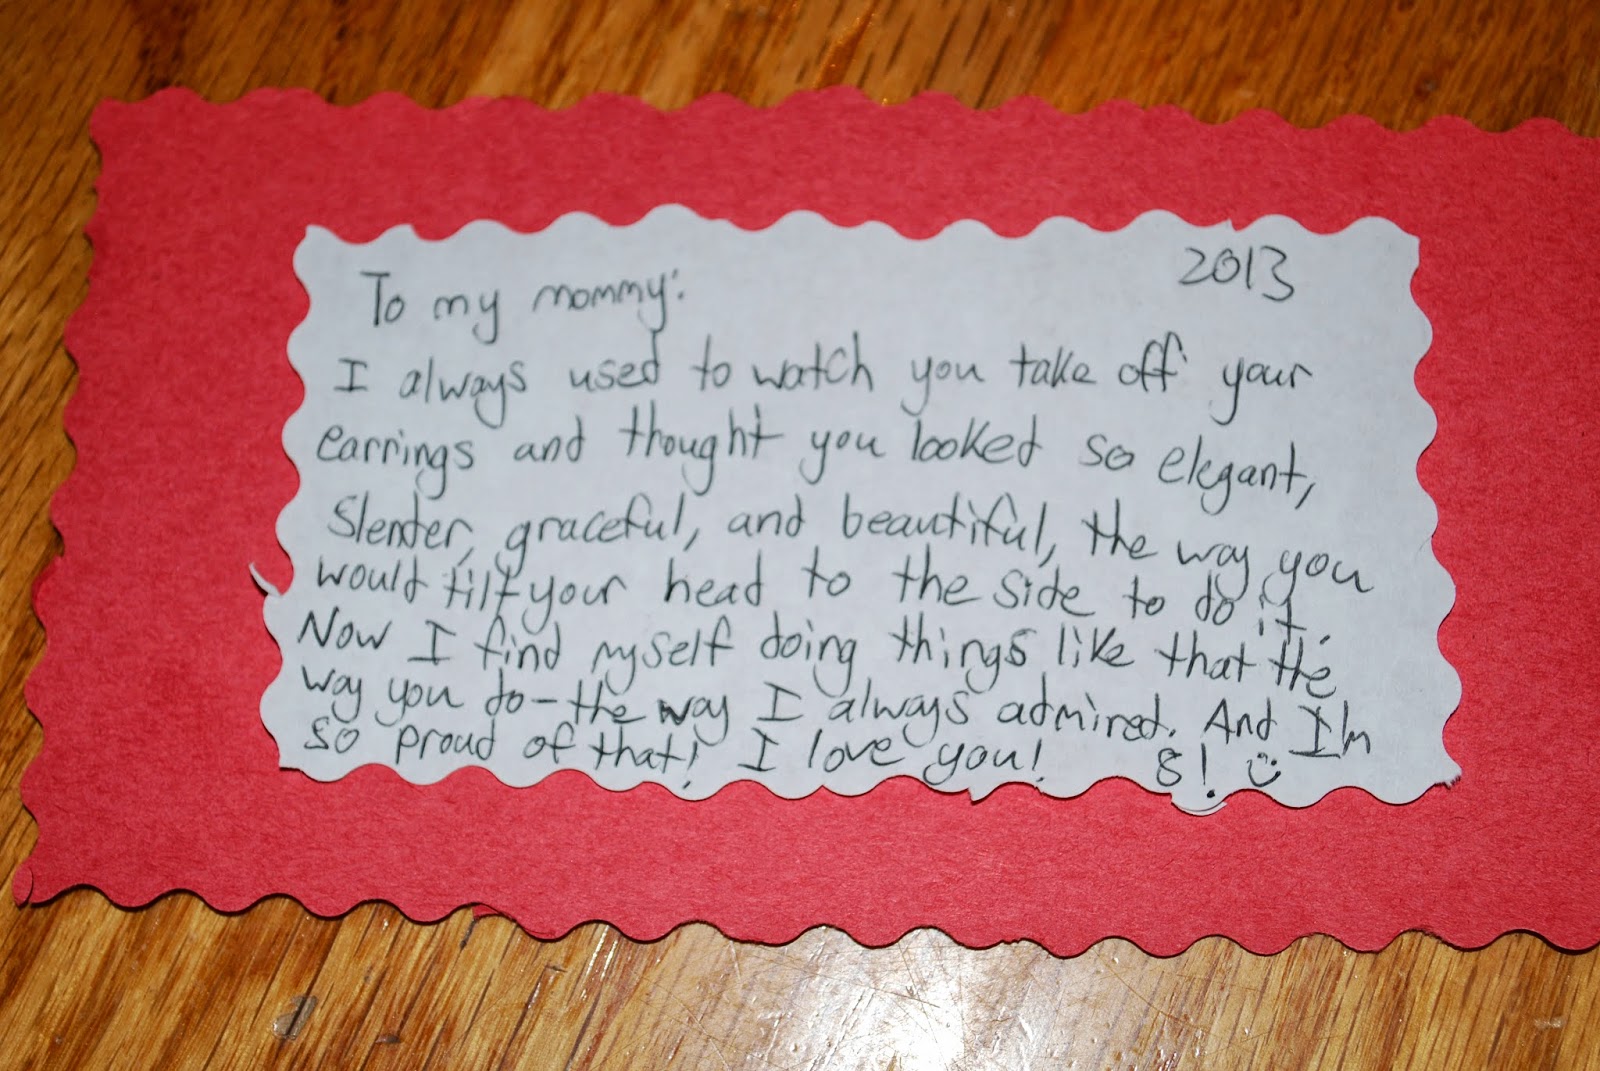 2013
To my mommy:
I always used to watch you take off your
earrings and thought you looked so elegant,
slender, graceful, and beautiful, the way you
would tilt your head to the side to do it.
Now I find myself doing things like that the
way you do – the way I always admired. And I'm
so proud of that! I love you! 8! ☺